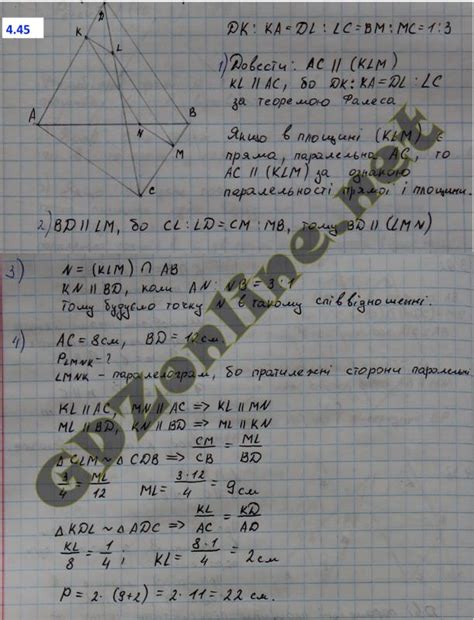 4.45
DK : KA = DL : LC = BM : MC = 1:3
D
K
L
A
B
N
M
C
1) Довести: AC || (KLM)
KL || AC, бо DK : KA = DL : LC
за теоремою Фалеса
Якщо в площині (KLM) є
пряма, паралельна AC, то
AC || (KLM) за ознакою
паралельності прямої і площини.
2) BD || LM, бо CL : LD = CM : MB, тому BD || (LMN)
3) N = (KLM) ∩ AB
KN || BD, коли AN : NB = 3:1
Тому будуємо точку N в такому співвідношенні.
4) AC = 8см, BD = 12см.
PLMNK - ?
LMNK - паралелограм, бо протилежні сторони паралельні
KL || AC, MN || AC => KL || MN
ML || BD, KN || BD => ML || KN
△CLM ~ △CDB => CM/CB = ML/BD
3/4 = ML/12 ML = 3·12/4 = 9см
△KDL ~ △ADC => KL/AC = KD/AD
KL/8 = 1/4; KL = 8·1/4 = 2см
P = 2·(9+2) = 2·11 = 22 см.
GDZonline.net